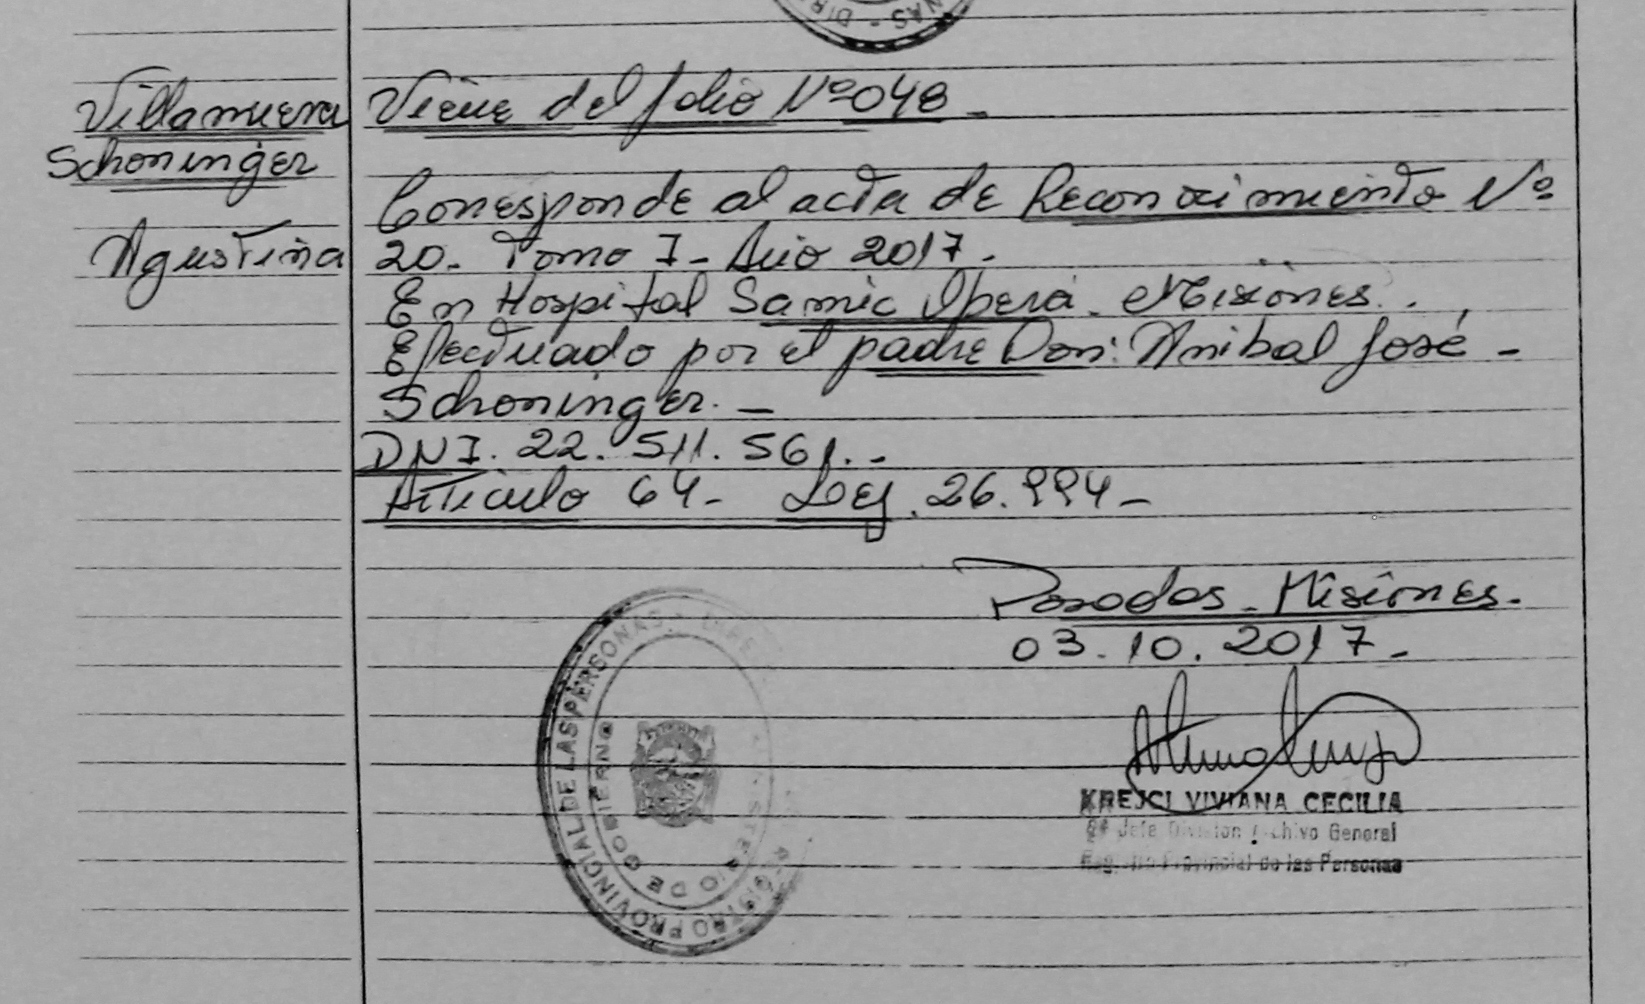 NAS - DIR
Villanueva
Schoninger
Agustina
Viene del folio Nº 048 -
Corresponde al acta de Reconocimiento Nº
20. Tomo I - Año 2017.
En Hospital Samic Oberá. Misiones.
Efectuado por el padre Don: Anibal José -
Schoninger. -
DNI. 22.511.561. -
Articulo 64 - Ley. 26.994 -
Posadas - Misiones.
03.10.2017. -
KREJCI VIVIANA CECILIA
2ª Jefe Division Archivo General
Registro Provincial de las Personas
REGISTRO PROVINCIAL DE LAS PERSONAS -
MINISTERIO DE GOBIERNO